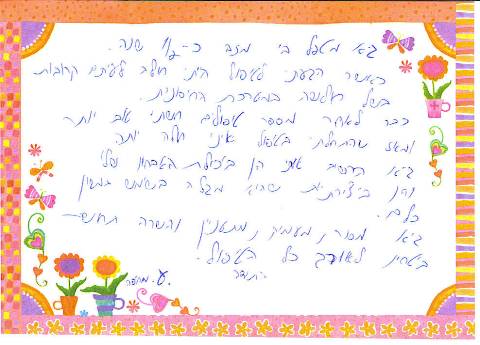 גיא מטפל בי מזה כ-1/2 שנה.
כאשר הגעתי לטיפול הייתי חולה לעיתים קרובות
בשל חולשה במערכת החיסונית.
כבר לאחר מספר טיפולים חשתי טוב יותר
ומאז שהתחלתי בטיפול איני חולה יותר.
גיא הרשים אותי הן ביכולת האבחון שלו
והן ביצירתיות שהיא מגלה בשימוש במגוון
כלים.
גיא מסור, מעמיק, מתעניין והשרה תחושת
ביטחון לאורך כל הטיפול.
תודה
ע. מחיפה